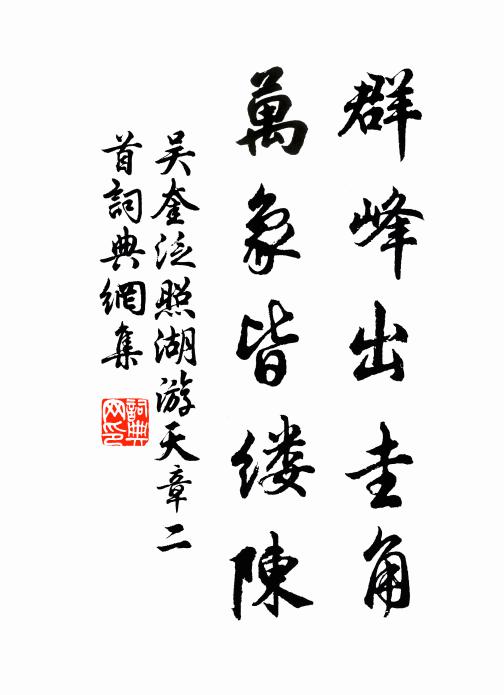 群峰出圭角
萬象皆缕陳
吴奎泛照湖游天章二
首詞典網集
詞典
网印